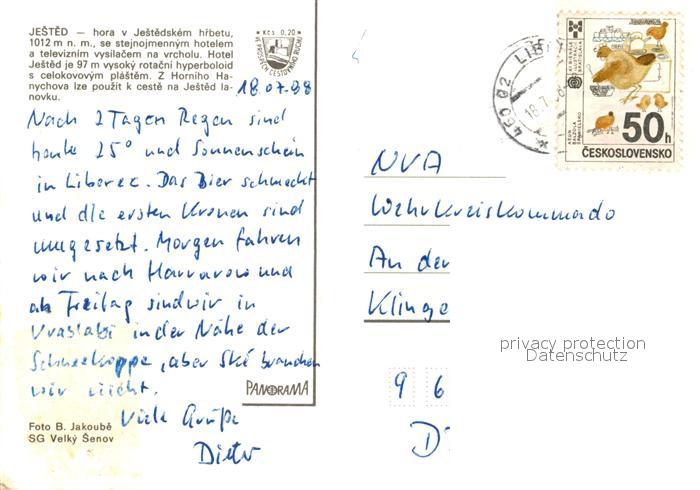 JEŠTĚD — hora v Ještědském hřbetu,
1012 m n. m., se stejnojmenným hotelem
a televizním vysílačem na vrcholu. Hotel
Ještěd je 97 m vysoký rotační hyperboloid
s celokovovým pláštěm. Z Horního Ha-
nychova lze použít k cestě na Ještěd la-
novku.
Kčs 0,20
VE PROSPĚCH CESTOVNÍHO RUCHU
18.07.88
Nach 2 Tagen Regen sind
heute 25° und Sonnenschein
in Liberec. Das Bier schmeckt
und die ersten Kronen sind
umgesetzt. Morgen fahren
wir nach Harrarow und
ab Freitag sind wir in
Vrastabi in der Nähe der
Schneekoppe, aber Ski brauchen
wir nicht.
Viele Grüße
Dieter
PANORAMA
Foto B. Jakoubě
SG Velký Šenov
460 02 LIB
18.7.
50h
ČESKOSLOVENSKO
NVA
Wehrkreiskommado
An der
Klinge
9 6
D
privacy protection
Datenschutz